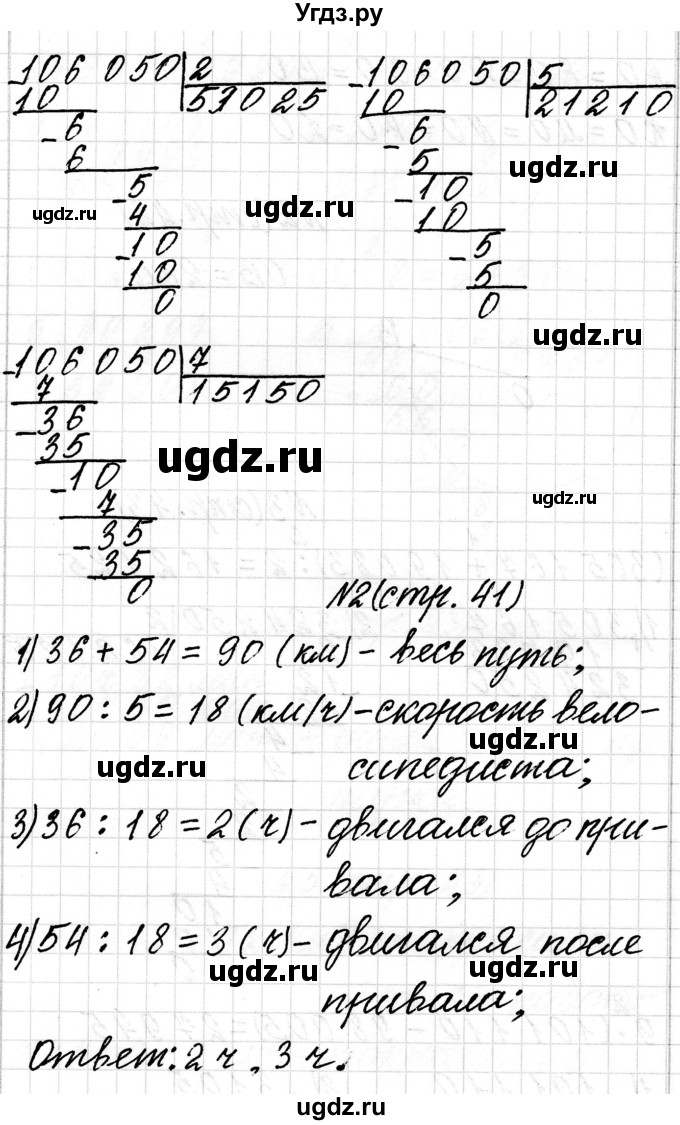 Угдз.ру
-106 050 | 2
10
53025
-6
6
-5
4
-10
10
0
-106050 | 5
10
21210
-6
5
-10
10
-5
5
0
ugdz.ru
ugdz.ru
ugdz.ru
ugdz.ru
-106 050 | 7
7
15150
-36
35
-10
7
-35
35
0
ugdz.ru
ugdz.ru
№2(стр. 41)
1) 36 + 54 = 90 (км) - весь путь;
2) 90 : 5 = 18 (км/ч) - скорость вело-
ugdz.ru
ugdz.ru
сипедиста;
3) 36 : 18 = 2 (ч) - двигался до при-
вала;
4) 54 : 18 = 3 (ч) - двигался после
ugdz.ru
ugdz.ru
привала;
Ответ: 2 ч, 3 ч.
ugdz.ru